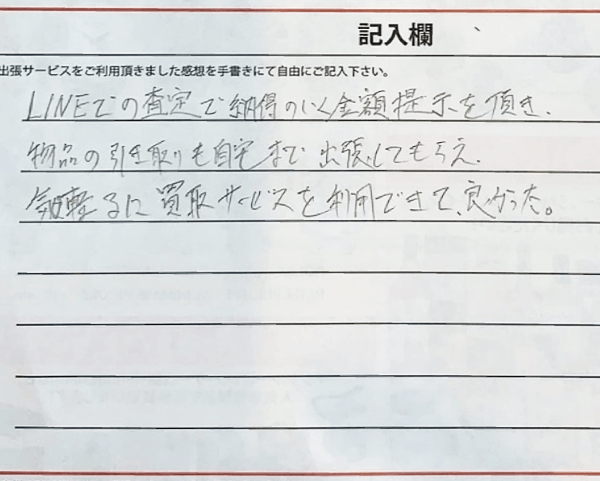 記入欄
出張サービスをご利用頂きました感想を手書きにて自由にご記入下さい。
LINEでの査定で納得のいく金額提示を頂き、
物品の引き取りも自宅まで出張してもらえ、
気軽るに買取サービスを利用できて、良かった。